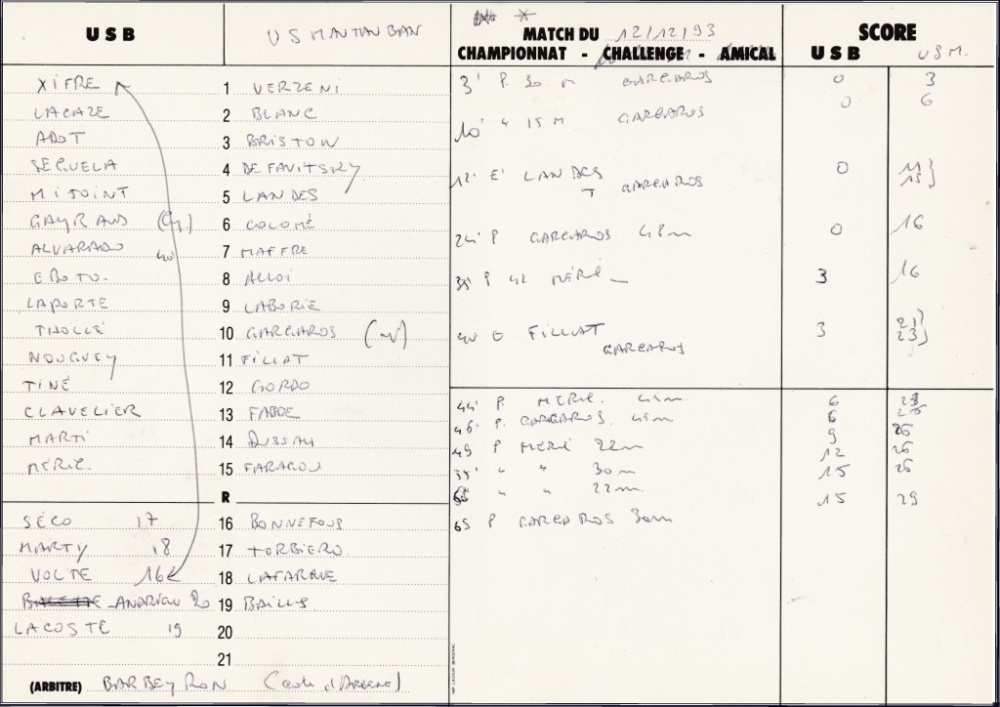 USB
US MONTAUBAN
MATCH DU 12/12/93
CHAMPIONNAT - CHALLENGE - AMICAL
SCORE
USB USM.
XIFRE 1 VERZENI
LACAZE 2 BLANC
ADOT 3 BRISTOW
SEGUELA 4 DE FAVITSKY
MIJOINT 5 LANDES
GAYRAUD 6 COLOMÉ
ALVARADO 40 7 MAFFRE
EBOTO. 8 ALLOI
LAPORTE 9 LABORIE
THOLLÉ 10 GARGAROS
NOUGUEY 11 FILLAT
TINÉ 12 GORDO
CLAVELIER 13 FABRE
MARTI 14 DUSSAU
MERIC. 15 FARAGOU
R
SÉCO 17 16 BONNEFOUS
MARTY 18 17 TORBIERO
VOLTE 16 18 LAFARGUE
ANDRIEU 20 19 BAILLS
LACOSTE 19 20
21
(ARBITRE) BARBEYRON
3' P. 30 m GARGAROS 0 3
10' " 15 M GARGAROS 0 6
12' E' LANDES 0 11
T GARGAROS 13
24' P GARGAROS 48m 0 16
P 42 MÉRIC 3 16
40 E FILLAT 3 21
GARGAROS 23
44' P MERIC. 45m 6
46' P. GARGAROS. 45m 6 26
49 P MERIC 22m 9 26
" " 30m 12 26
" " 22m 15 26
65 P GARGAROS 30m 15 29